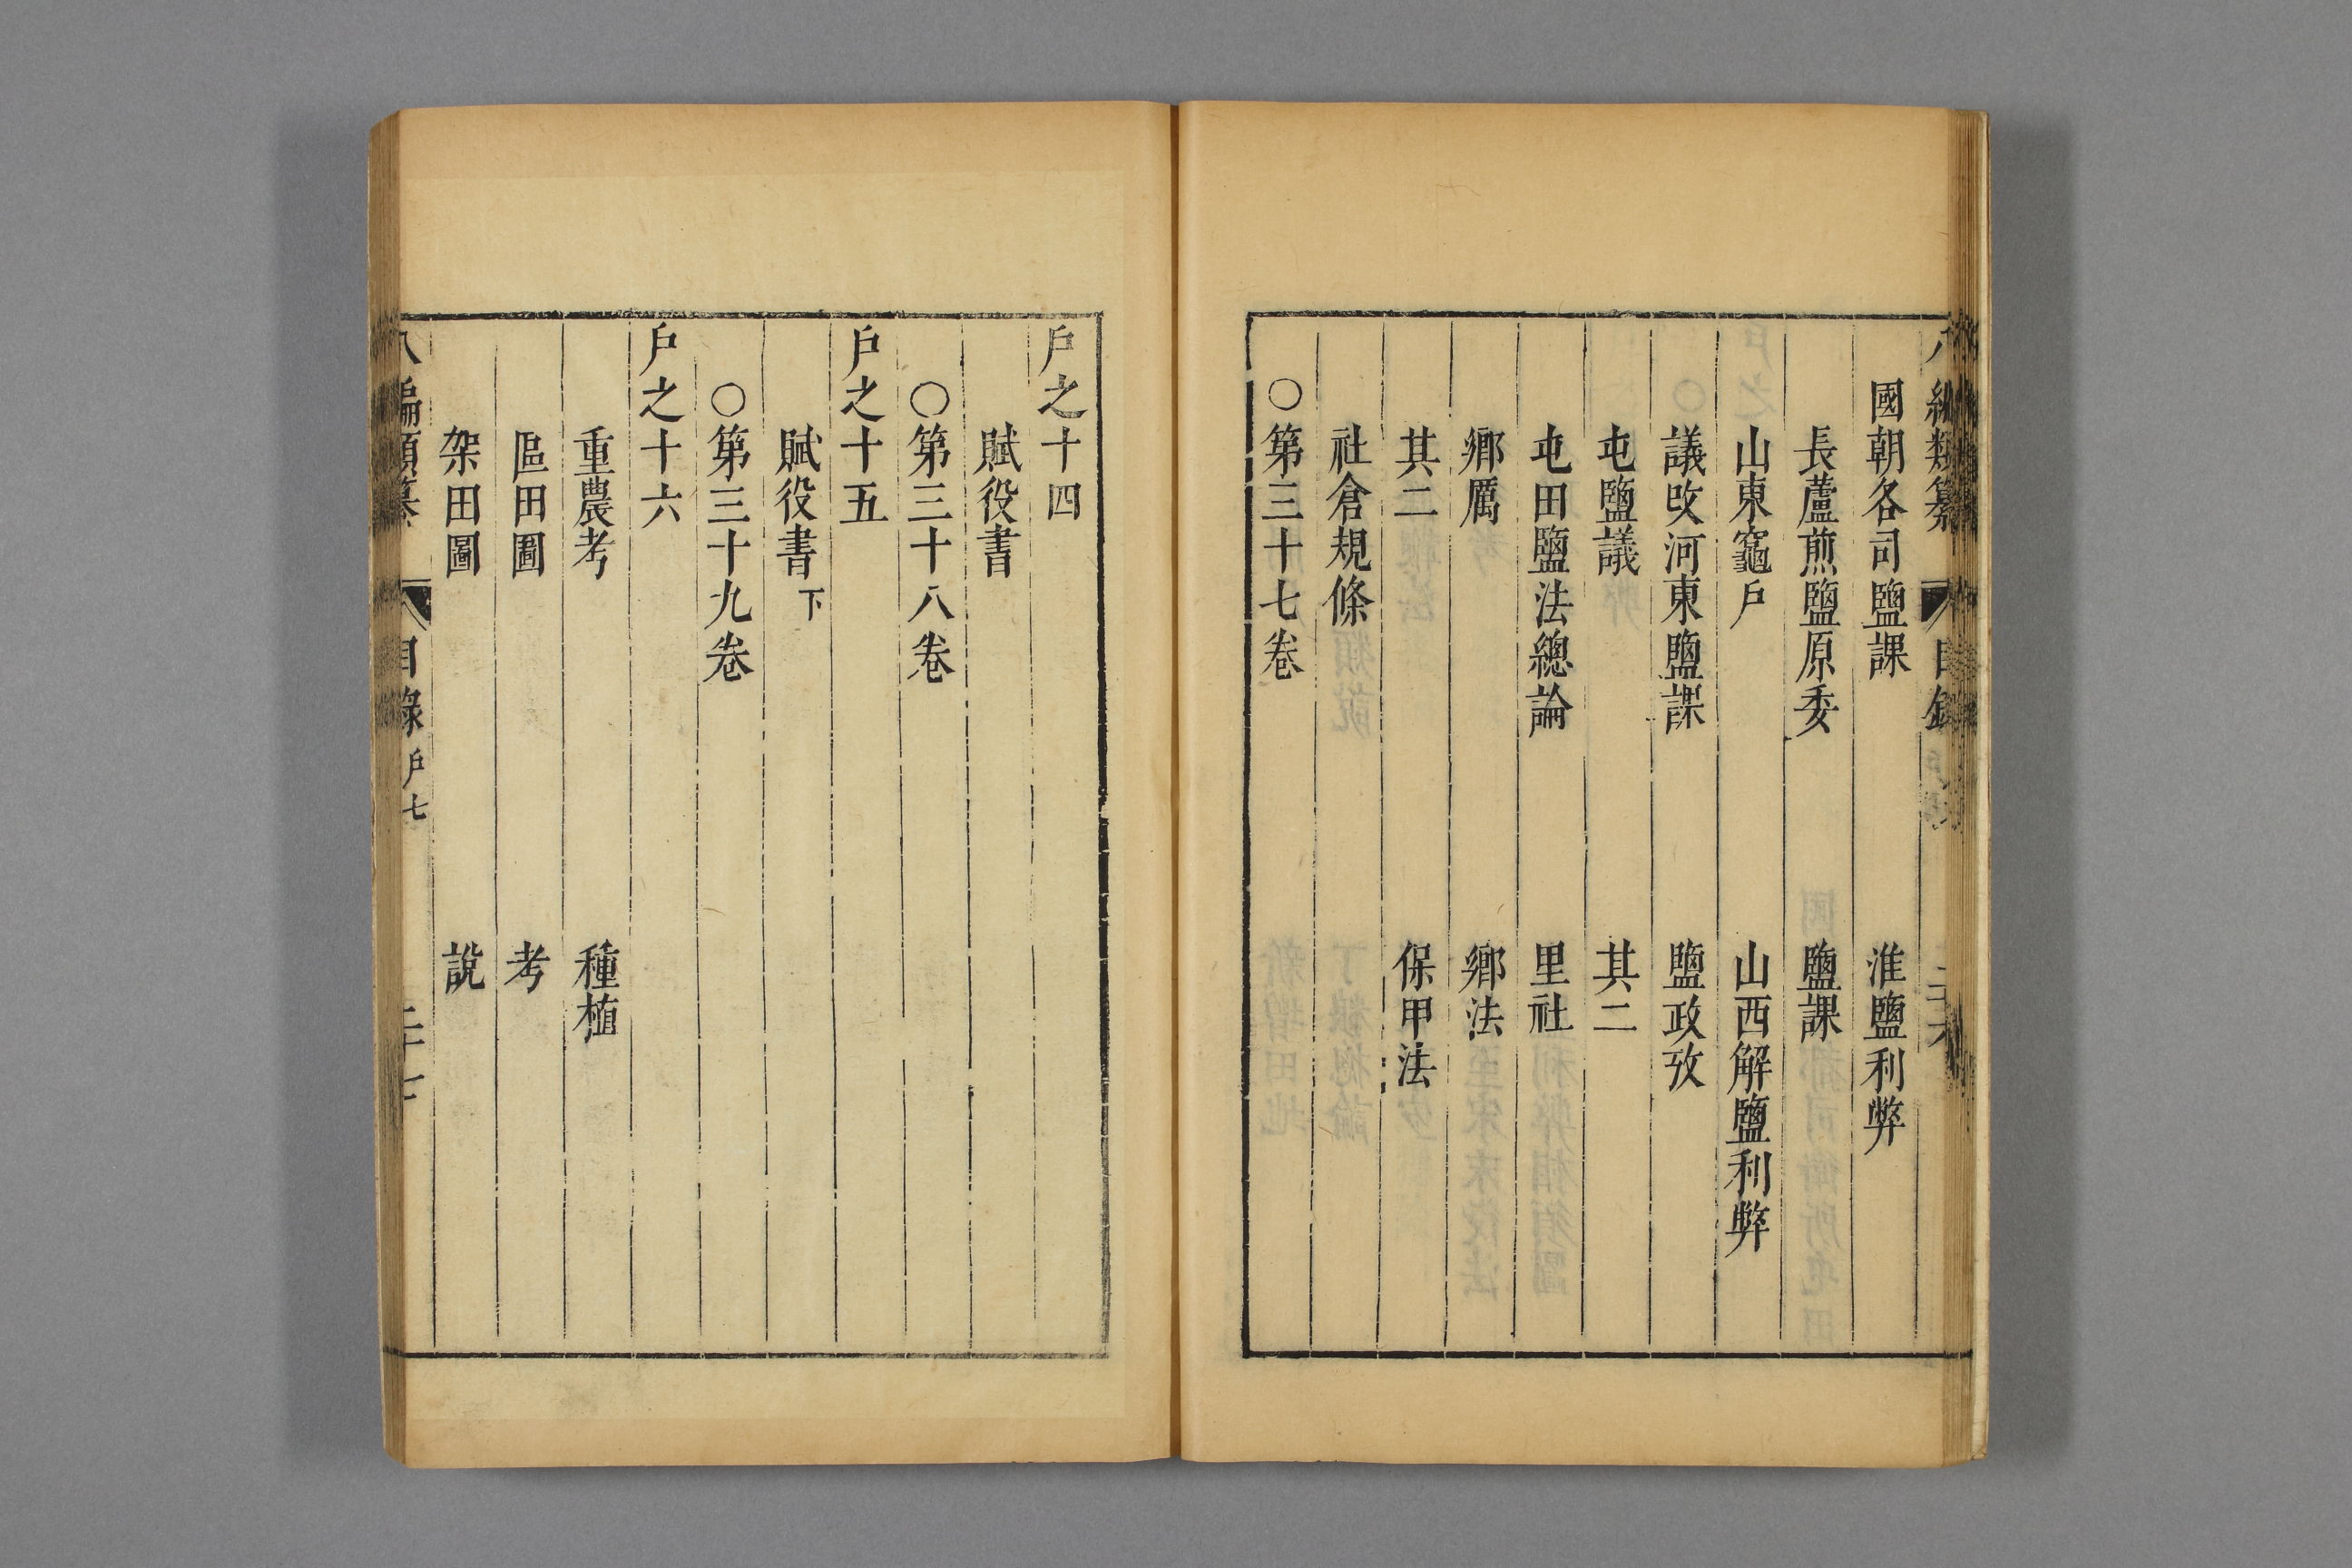 國朝各司鹽課　淮鹽利弊
長蘆煎鹽原委　鹽課
山東竈戶　山西解鹽利弊
議改河東鹽課　鹽政攷
屯鹽議　其二
屯田鹽法總論　里社
鄉厲　鄉法
其二　保甲法
社倉規條
○第三十七卷
戶之十四
賦役書
○第三十八卷
戶之十五
賦役書下
○第三十九卷
戶之十六
重農考　種植
區田圖　考
架田圖　說
八編類纂　目錄　戶七